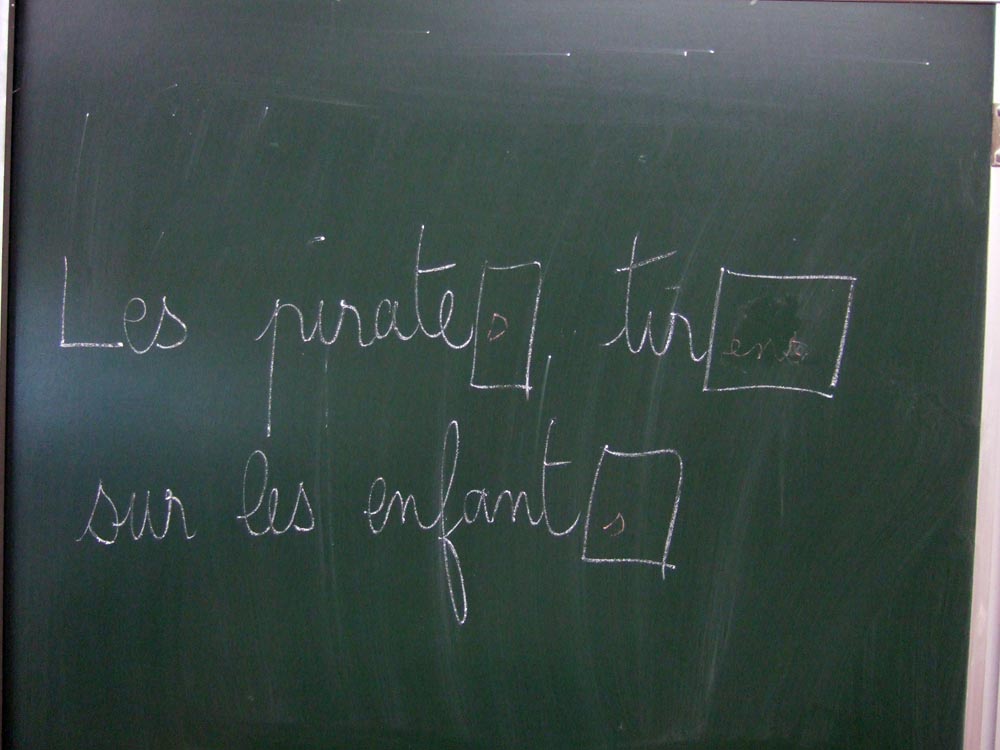 Les pirates tirent
sur les enfants